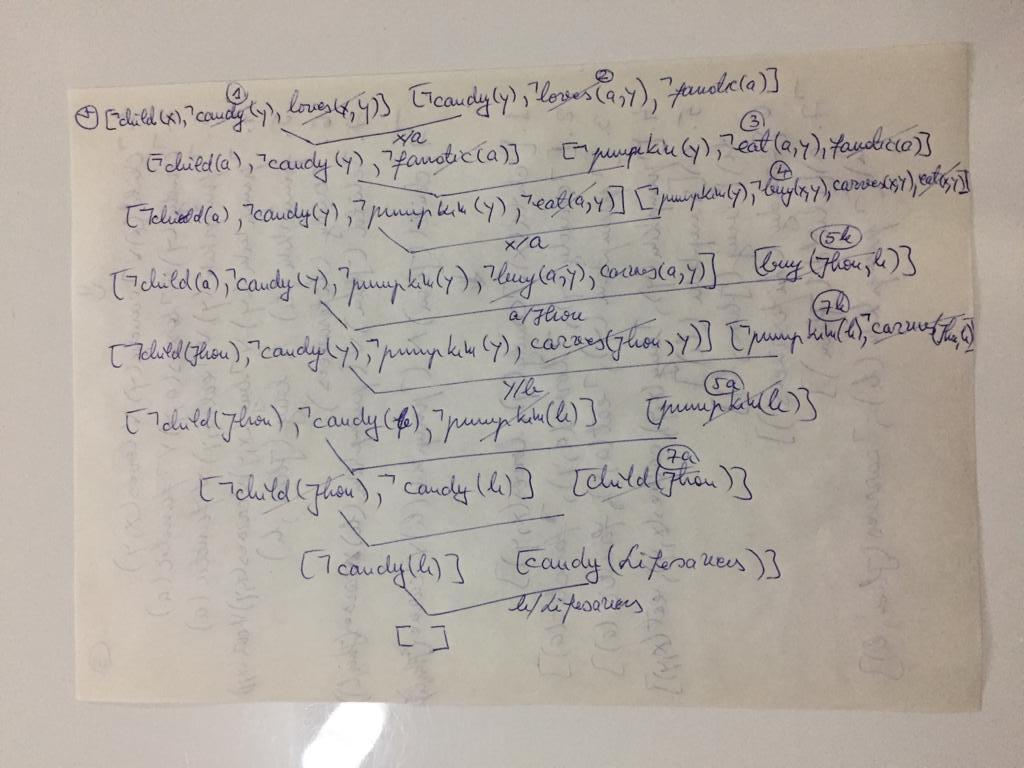 ① ②
[¬child(x), ¬candy(y), loves(x,y)] [¬candy(y), ¬loves(a,y), ¬fanatic(a)]
x/a
③
[¬child(a), ¬candy(y), ¬fanatic(a)] [¬pumpkin(y), ¬eat(a,y), fanatic(a)]
④
[¬child(a), ¬candy(y), ¬pumpkin(y), ¬eat(a,y)] [¬pumpkin(y), ¬buy(x,y), carves(x,y), eat(x,y)]
x/a
5b
[¬child(a), ¬candy(y), ¬pumpkin(y), ¬buy(a,y), carves(a,y)] [buy(Jhon, b)]
a/Jhon
7b
[¬child(Jhon), ¬candy(y), ¬pumpkin(y), carves(Jhon, y)] [¬pumpkin(b), ¬carves(Jhon,b)]
y/b
5a
[¬child(Jhon), ¬candy(b), ¬pumpkin(b)] [pumpkin(b)]
7a
[¬child(Jhon), ¬candy(b)] [child(Jhon)]
[¬candy(b)] [candy(Lifesavers)]
b/Lifesavers
[ ]